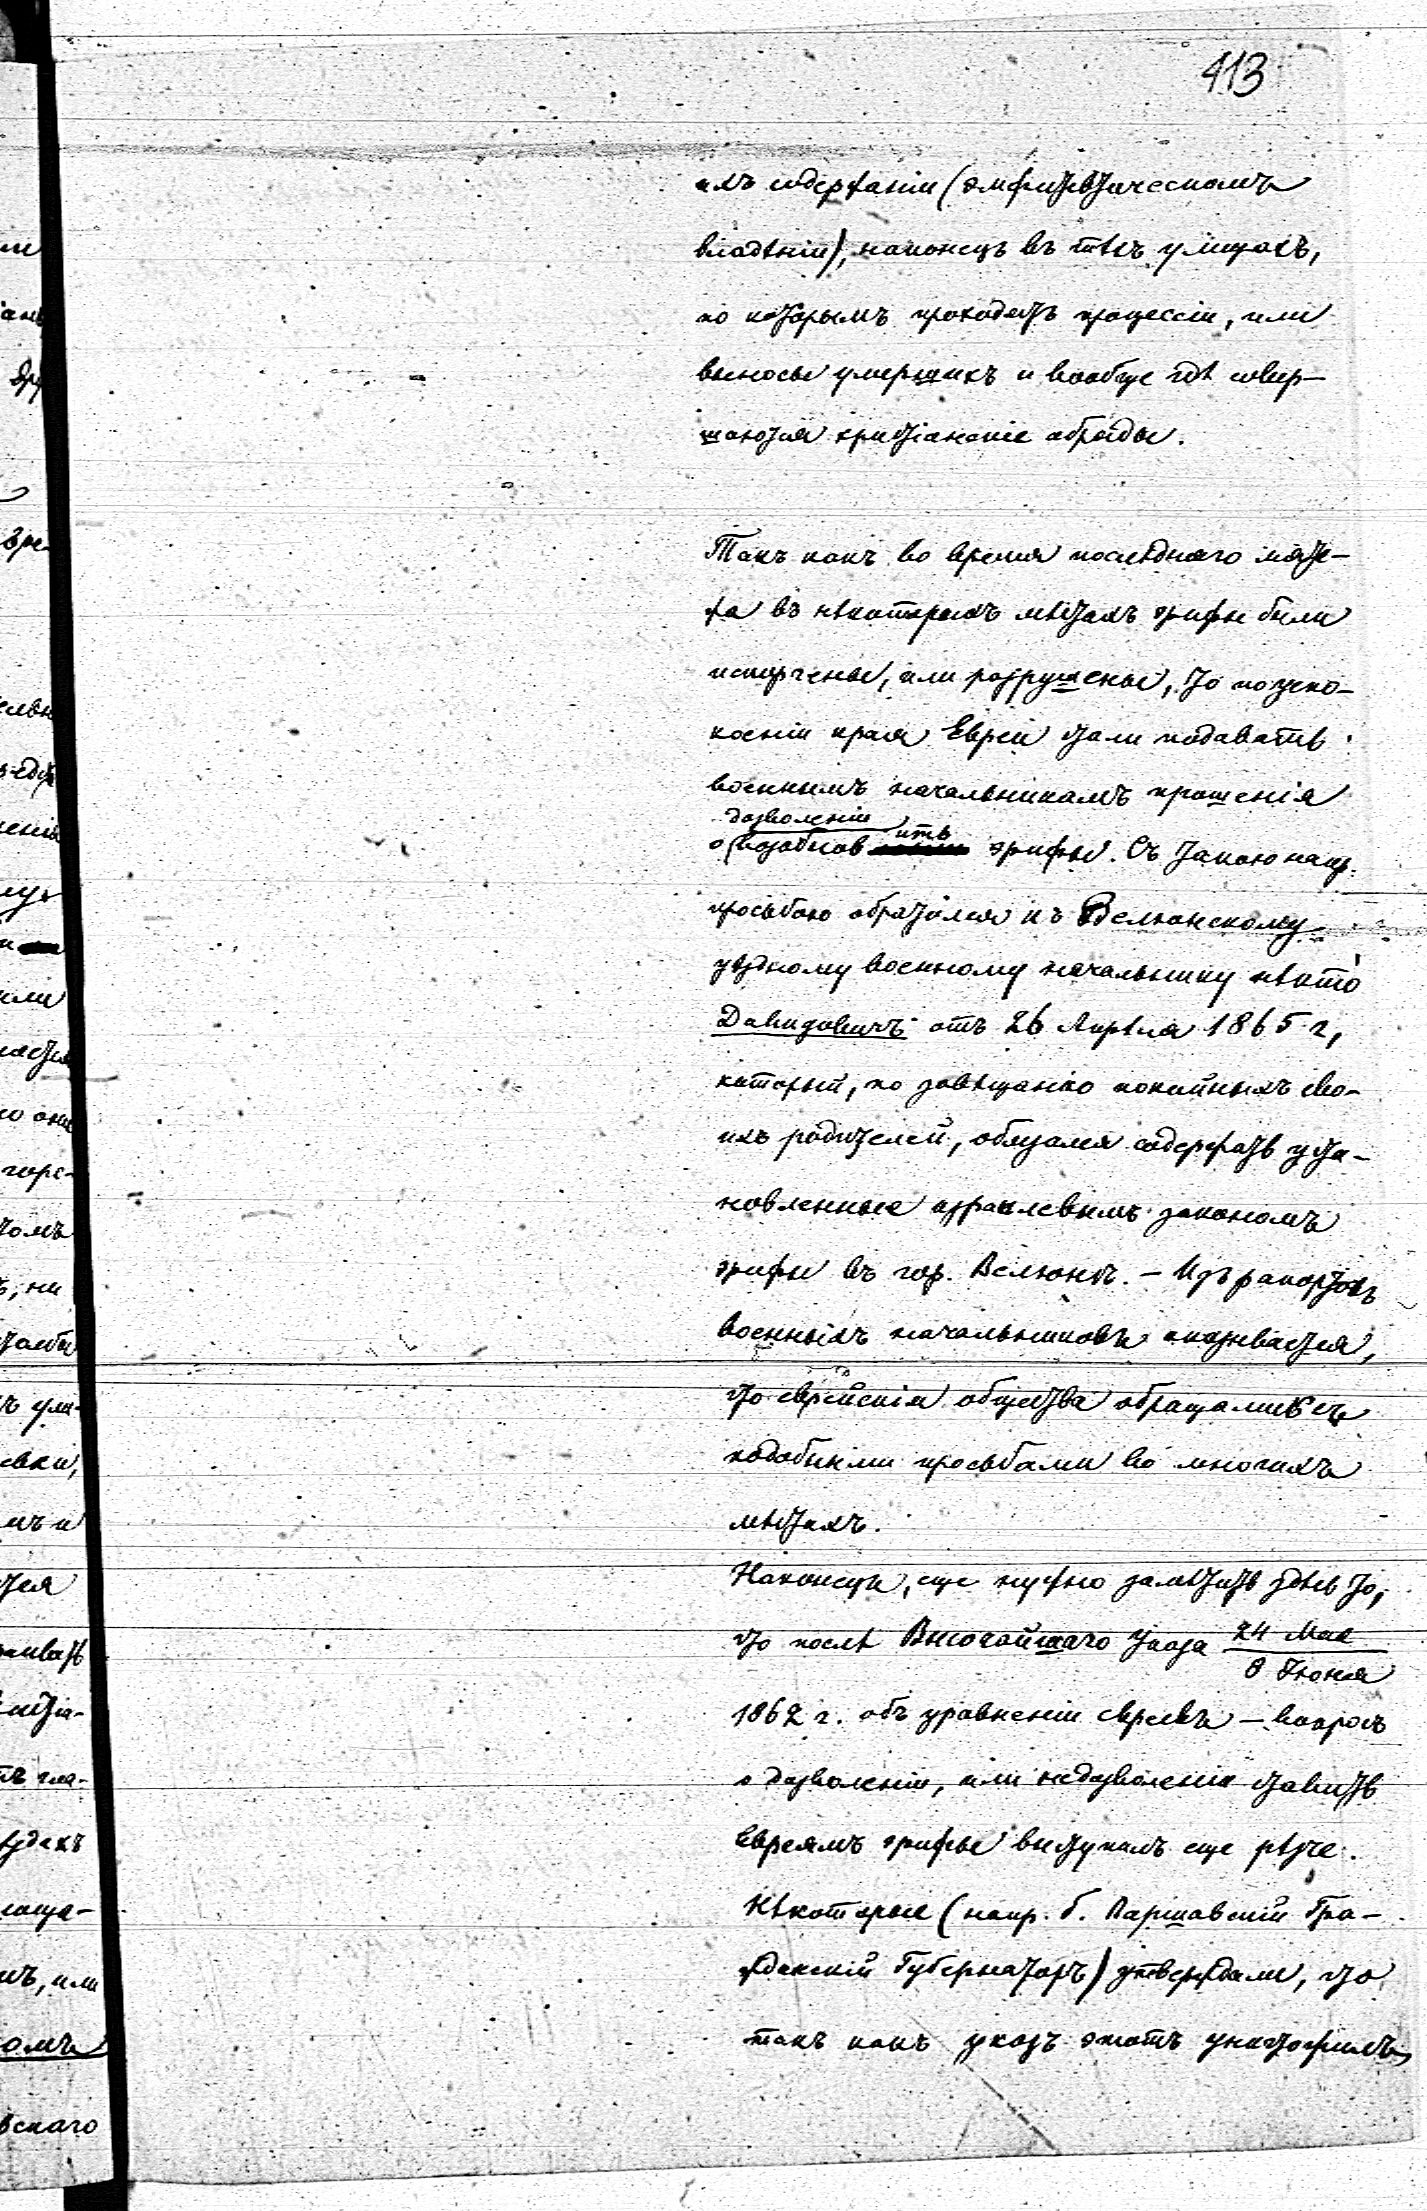 413
ихъ содержаніи (эмфитевтическомъ
владѣніи), наконецъ въ тѣхъ улицахъ,
по которымъ проходятъ процессіи, или
выносы умершихъ и вообще гдѣ совер-
шаются христіанскіе обряды.
Такъ какъ во время послѣдняго мяте-
жа въ нѣкоторыхъ мѣстахъ эрифы были
испорчены, или разрушены, то по успо-
коеніи края Евреи стали подавать
военнымъ начальникамъ прошенія
дозволеніи ить
о возобнов эрифы. Съ такою напр.
просьбою обратился къ Велюнскому
уѣздному военному начальнику нѣкто
Давидовичъ отъ 26 Апрѣля 1865 г,
который, по завѣщанію покойныхъ сво-
ихъ родителей, обязался содержать уста-
новленные израилевымъ закономъ
эрифы въ гор. Велюнѣ. – Изъ рапортовъ
военныхъ начальниковъ оказывается,
что еврейскія общества обращались съ
подобными просьбами во многихъ
мѣстахъ.
Наконецъ, еще нужно замѣтить здѣсь то,
что послѣ Высочайшаго Указа 24 Мая
8 Іюня
1862 г. объ уравненіи евреевъ – вопросъ
о дозволеніи, или недозволеніи ставить
евреямъ эрифы выступалъ еще рѣзче.
Нѣкоторые (напр. б. Варшавскій Гра-
жданскій Губернаторъ) утверждали, что
такъ какъ указъ этотъ уничтожилъ